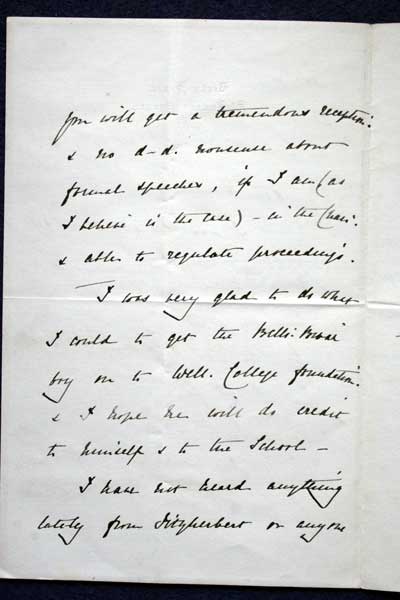 you will get a tremendous reception.
& no d-d. nonsense about
formal speeches, if I am (as
I believe is the case) - in the Chair.
& able to regulate proceedings.
I was very glad to do what
I could to get the
boy on to Well. College foundation.
& I hope he will do credit
to himself & to the School -
I have not heard anything
lately from Fitzherbert or anyone